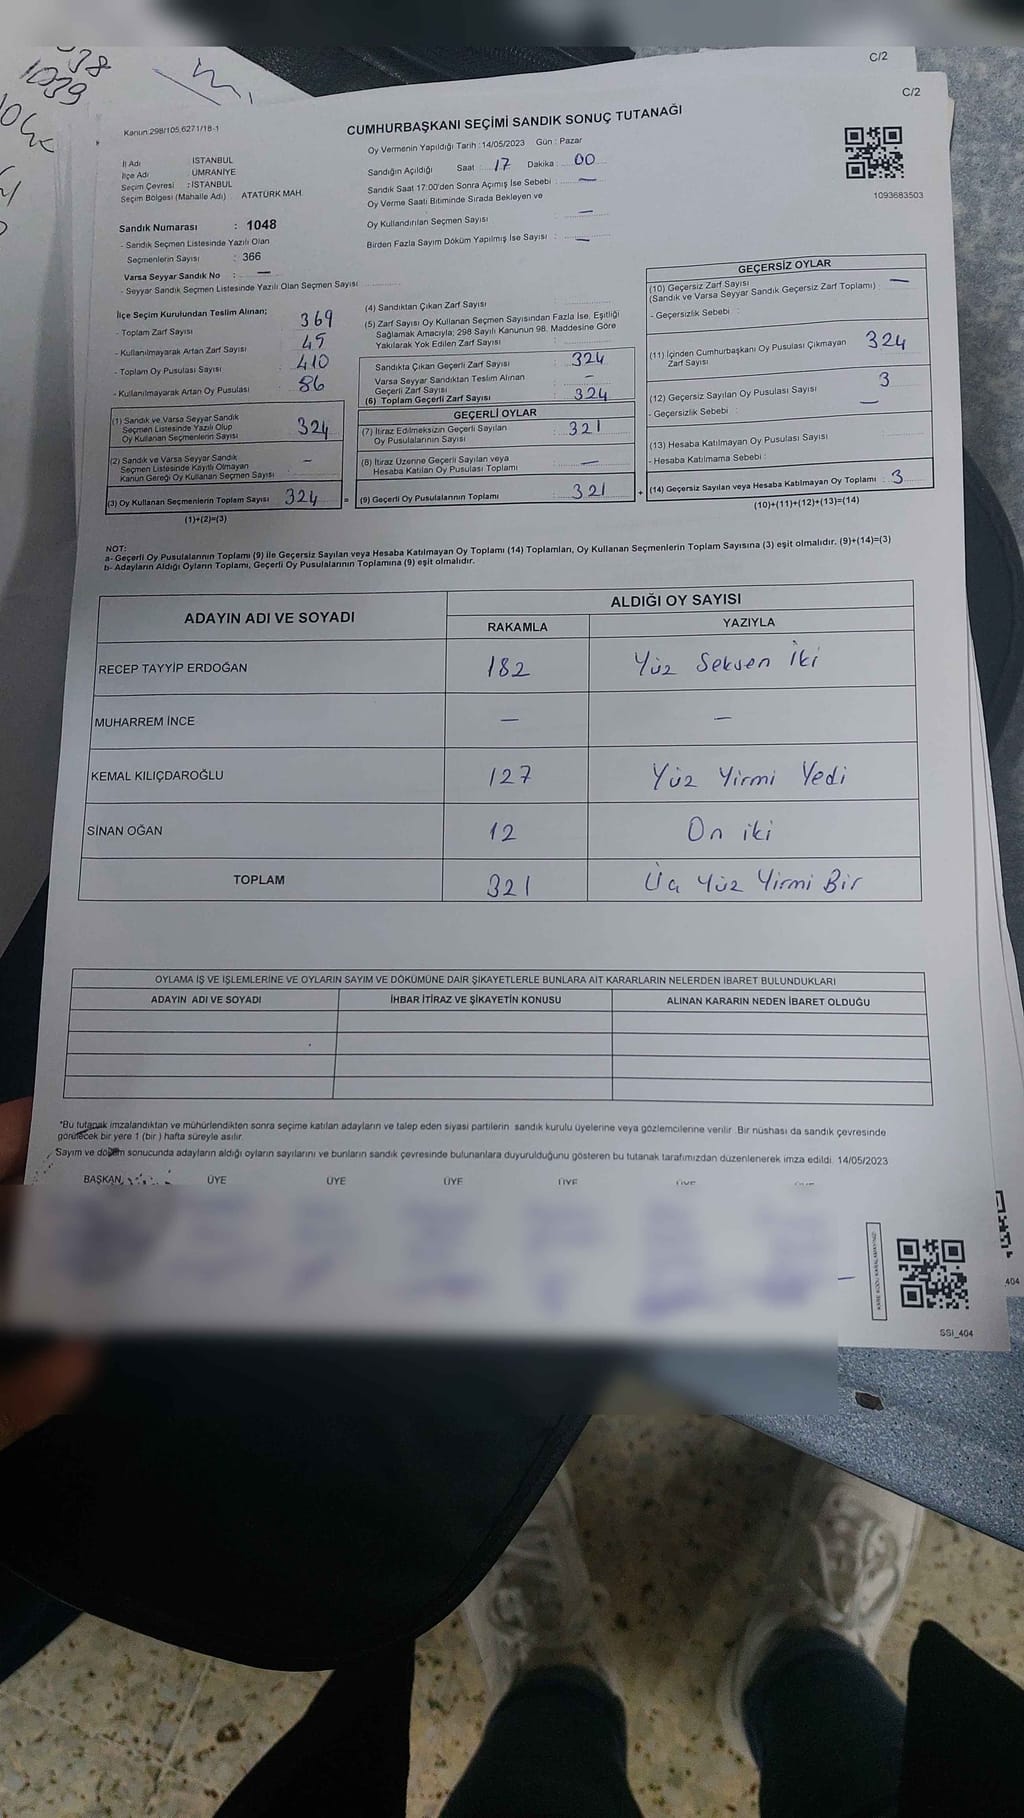 38
1039
C/2
C/2
Kanun:298/105,6271/18-1
CUMHURBAŞKANI SEÇİMİ SANDIK SONUÇ TUTANAĞI
Oy Vermenin Yapıldığı Tarih : 14/05/2023 Gün : Pazar
İl Adı : İSTANBUL
İlçe Adı : ÜMRANİYE
Seçim Çevresi : İSTANBUL
Seçim Bölgesi (Mahalle Adı) : ATATÜRK MAH.
Sandığın Açıldığı Saat : 17 Dakika : 00
Sandık Saat 17:00'den Sonra Açımış İse Sebebi : —
Oy Verme Saati Bitiminde Sırada Bekleyen ve
Oy Kullandırılan Seçmen Sayısı : —
Birden Fazla Sayım Döküm Yapılmış İse Sayısı : —
1093683503
Sandık Numarası : 1048
- Sandık Seçmen Listesinde Yazılı Olan
Seçmenlerin Sayısı : 366
Varsa Seyyar Sandık No : —
- Seyyar Sandık Seçmen Listesinde Yazılı Olan Seçmen Sayısı :
İlçe Seçim Kurulundan Teslim Alınan;
- Toplam Zarf Sayısı : 369
- Kullanılmayarak Artan Zarf Sayısı : 45
- Toplam Oy Pusulası Sayısı : 410
- Kullanılmayarak Artan Oy Pusulası : 86
(1) Sandık ve Varsa Seyyar Sandık
Seçmen Listesinde Yazılı Olup
Oy Kullanan Seçmenlerin Sayısı : 324
(2) Sandık ve Varsa Seyyar Sandık
Seçmen Listesinde Kayıtlı Olmayan
Kanun Gereği Oy Kullanan Seçmen Sayısı : —
(3) Oy Kullanan Seçmenlerin Toplam Sayısı 324 =
(1)+(2)=(3)
(4) Sandıktan Çıkan Zarf Sayısı :
(5) Zarf Sayısı Oy Kullanan Seçmen Sayısından Fazla İse, Eşitliği
Sağlamak Amacıyla; 298 Sayılı Kanunun 98. Maddesine Göre
Yakılarak Yok Edilen Zarf Sayısı :
Sandıkta Çıkan Geçerli Zarf Sayısı : 324
Varsa Seyyar Sandıktan Teslim Alınan
Geçerli Zarf Sayısı : —
(6) Toplam Geçerli Zarf Sayısı : 324
GEÇERLİ OYLAR
(7) İtiraz Edilmeksizin Geçerli Sayılan
Oy Pusulalarının Sayısı : 321
(8) İtiraz Üzerine Geçerli Sayılan veya
Hesaba Katılan Oy Pusulası Toplamı : —
(9) Geçerli Oy Pusulalarının Toplamı : 321 +
GEÇERSİZ OYLAR
(10) Geçersiz Zarf Sayısı
(Sandık ve Varsa Seyyar Sandık Geçersiz Zarf Toplamı) : —
- Geçersizlik Sebebi :
(11) İçinden Cumhurbaşkanı Oy Pusulası Çıkmayan
Zarf Sayısı : 324
(12) Geçersiz Sayılan Oy Pusulası Sayısı : 3
- Geçersizlik Sebebi : —
(13) Hesaba Katılmayan Oy Pusulası Sayısı :
- Hesaba Katılmama Sebebi :
(14) Geçersiz Sayılan veya Hesaba Katılmayan Oy Toplamı : 3
(10)+(11)+(12)+(13)=(14)
NOT:
a- Geçerli Oy Pusulalarının Toplamı (9) ile Geçersiz Sayılan veya Hesaba Katılmayan Oy Toplamı (14) Toplamları, Oy Kullanan Seçmenlerin Toplam Sayısına (3) eşit olmalıdır. (9)+(14)=(3)
b- Adayların Aldığı Oyların Toplamı, Geçerli Oy Pusulalarının Toplamına (9) eşit olmalıdır.
ADAYIN ADI VE SOYADI
ALDIĞI OY SAYISI
RAKAMLA YAZIYLA
RECEP TAYYİP ERDOĞAN 182 Yüz Seksen İki
MUHARREM İNCE — —
KEMAL KILIÇDAROĞLU 127 Yüz Yirmi Yedi
SİNAN OĞAN 12 On iki
TOPLAM 321 Üç Yüz Yirmi Bir
OYLAMA İŞ VE İŞLEMLERİNE VE OYLARIN SAYIM VE DÖKÜMÜNE DAİR ŞİKAYETLERLE BUNLARA AİT KARARLARIN NELERDEN İBARET BULUNDUKLARI
ADAYIN ADI VE SOYADI İHBAR İTİRAZ VE ŞİKAYETİN KONUSU ALINAN KARARIN NEDEN İBARET OLDUĞU
*Bu tutanak imzalandıktan ve mühürlendikten sonra seçime katılan adayların ve talep eden siyasi partilerin sandık kurulu üyelerine veya gözlemcilerine verilir. Bir nüshası da sandık çevresinde
görülecek bir yere 1 (bir) hafta süreyle asılır.
Sayım ve döküm sonucunda adayların aldığı oyların sayılarını ve bunların sandık çevresinde bulunanlara duyurulduğunu gösteren bu tutanak tarafımızdan düzenlenerek imza edildi. 14/05/2023
BAŞKAN ÜYE ÜYE ÜYE ÜYE ÜYE
404
SSI_404